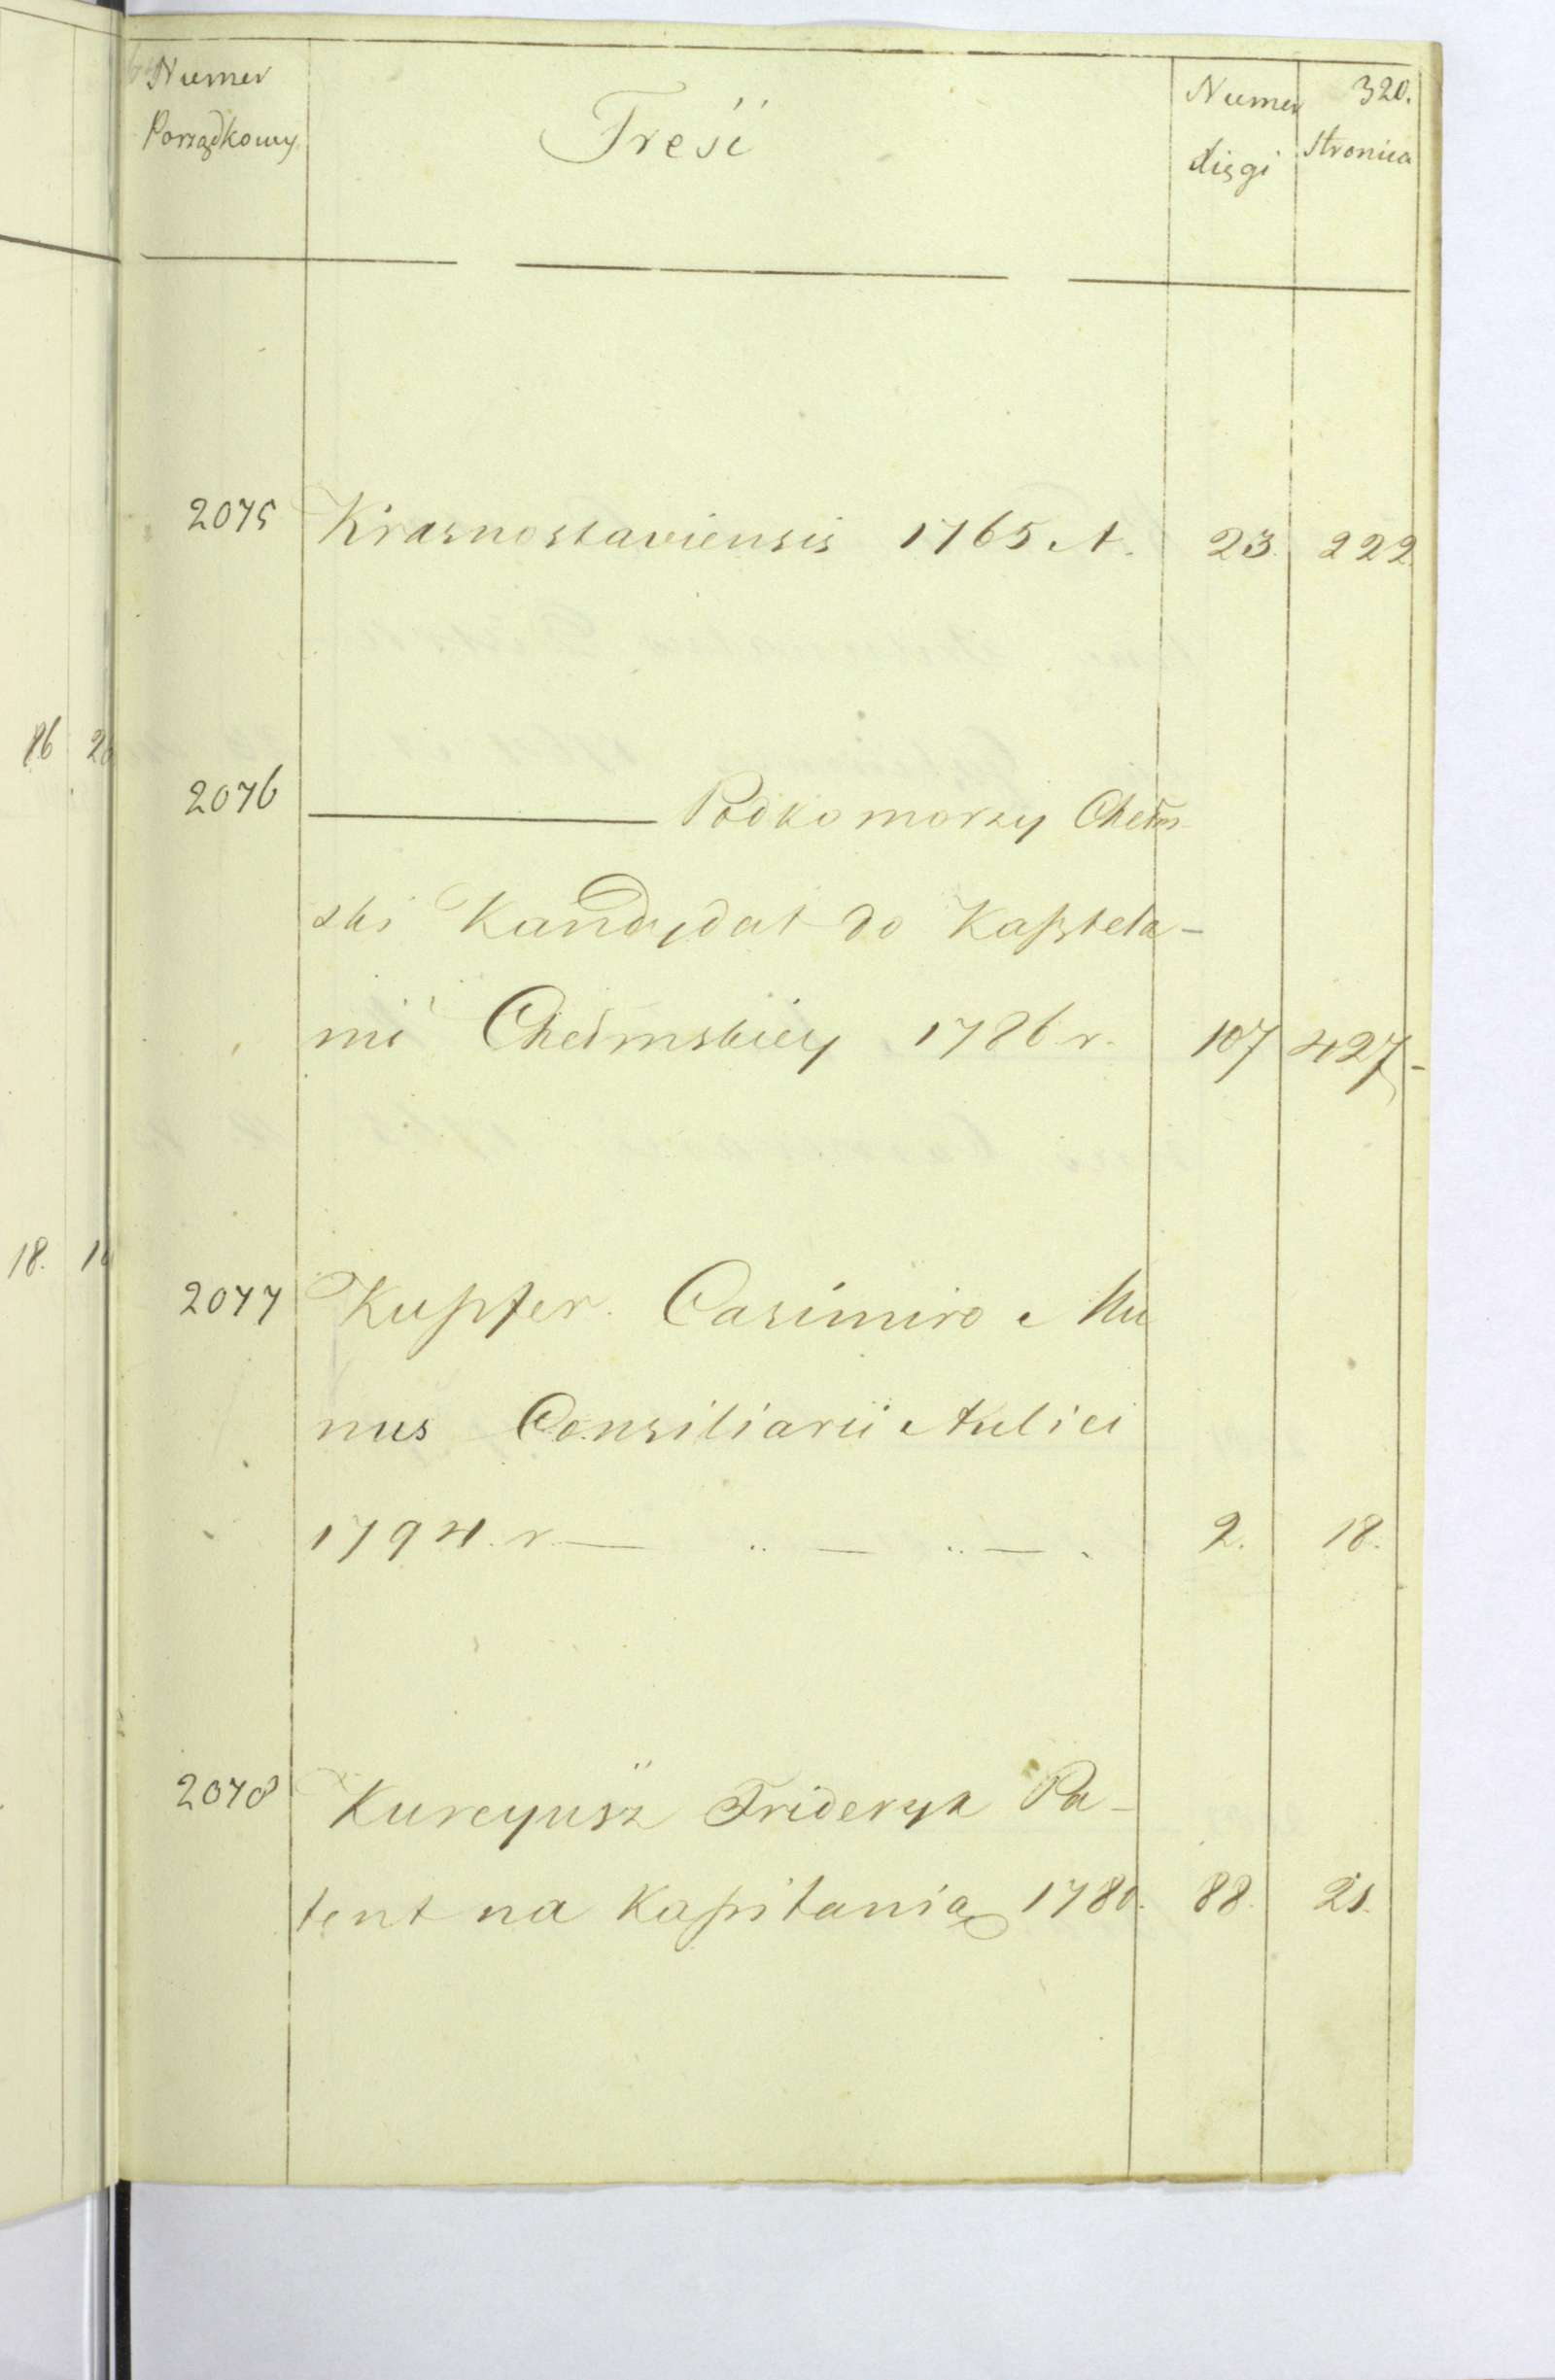 Numer Porządkowy
Treść
Numer Xięgi
320.
Stronica
2075 Krasnostaviensis 1765 A. 23. 222.
2076 ——— Podkomorzy Chełm-
ski Kandydat do Kasztela-
nii Chełmskiey 1786 r. 107 427-
2077 Kupfer. Casimiro Mu
nus Consiliarii Aulici
1794. r — .. — .. — . 2. 18.
2078 Kurcyusz Frideryk Pa-
tent na Kapitanią 1780. 88. 21.
86 20
18. 10